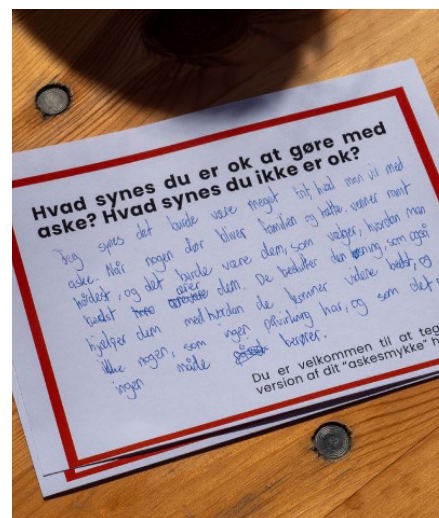 Hvad synes du er ok at gøre med
aske? Hvad synes du ikke er ok?
Jeg synes det burde være meget frit, hvad man vil med
aske. Når nogen dør bliver familien og venner ramt
hårdest, og det burde være dem, som vælger, hvordan man
bedst ærer dem. De beslutter den, som også
hjælper dem med hvordan de kommer videre bedst, og
ikke nogen, som ingen påvirkning har, og som det
ingen måde berører.
Du er velkommen til at teg
version af dit "askesmykke" h